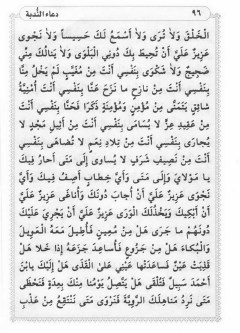 ٩٦ دعاء النُّدبة
الْخَلْقَ وَلاَ تُرَى وَلاَ أَسْمَعُ لَكَ حَسِيساً وَلاَ نَجْوَى
عَزِيزٌ عَلَيَّ أَنْ تُحِيطَ بِكَ دُونِيَ الْبَلْوَى وَلاَ يَنَالُكَ مِنِّي
ضَجِيجٌ وَلاَ شَكْوَى بِنَفْسِي أَنْتَ مِنْ مُغَيَّبٍ لَمْ يَخْلُ مِنَّا
بِنَفْسِي أَنْتَ مِنْ نَازِحٍ مَا نَزَحَ عَنَّا بِنَفْسِي أَنْتَ أُمْنِيَّةُ
شَائِقٍ يَتَمَنَّى مِنْ مُؤْمِنٍ وَمُؤْمِنَةٍ ذَكَرَا فَحَنَّا بِنَفْسِي أَنْتَ
مِنْ عَقِيدِ عِزٍّ لاَ يُسَامَى بِنَفْسِي أَنْتَ مِنْ أَثِيلِ مَجْدٍ لاَ
يُجَارَى بِنَفْسِي أَنْتَ مِنْ تِلاَدِ نِعَمٍ لاَ تُضَاهَى بِنَفْسِي
أَنْتَ مِنْ نَصِيفِ شَرَفٍ لاَ يُسَاوَى إِلَى مَتَى أَحَارُ فِيكَ
يَا مَوْلاَيَ وَإِلَى مَتَى وَأَيَّ خِطَابٍ أَصِفُ فِيكَ وَأَيَّ
نَجْوَى عَزِيزٌ عَلَيَّ أَنْ أُجَابَ دُونَكَ وَأُنَاغَى عَزِيزٌ عَلَيَّ
أَنْ أَبْكِيَكَ وَيَخْذُلَكَ الْوَرَى عَزِيزٌ عَلَيَّ أَنْ يَجْرِيَ عَلَيْكَ
دُونَهُمْ مَا جَرَى هَلْ مِنْ مُعِينٍ فَأُطِيلَ مَعَهُ الْعَوِيلَ
وَالْبُكَاءَ هَلْ مِنْ جَزُوعٍ فَأُسَاعِدَ جَزَعَهُ إِذَا خَلاَ هَلْ
قَذِيَتْ عَيْنٌ فَسَاعَدَتْهَا عَيْنِي عَلَى الْقَذَى هَلْ إِلَيْكَ يَابْنَ
أَحْمَدَ سَبِيلٌ فَتُلْقَى هَلْ يَتَّصِلُ يَوْمُنَا مِنْكَ بِعِدَةٍ فَنَحْظَى
مَتَى نَرِدُ مَنَاهِلَكَ الرَّوِيَّةَ فَنَرْوَى مَتَى نَنْتَقِعُ مِنْ عَذْبِ